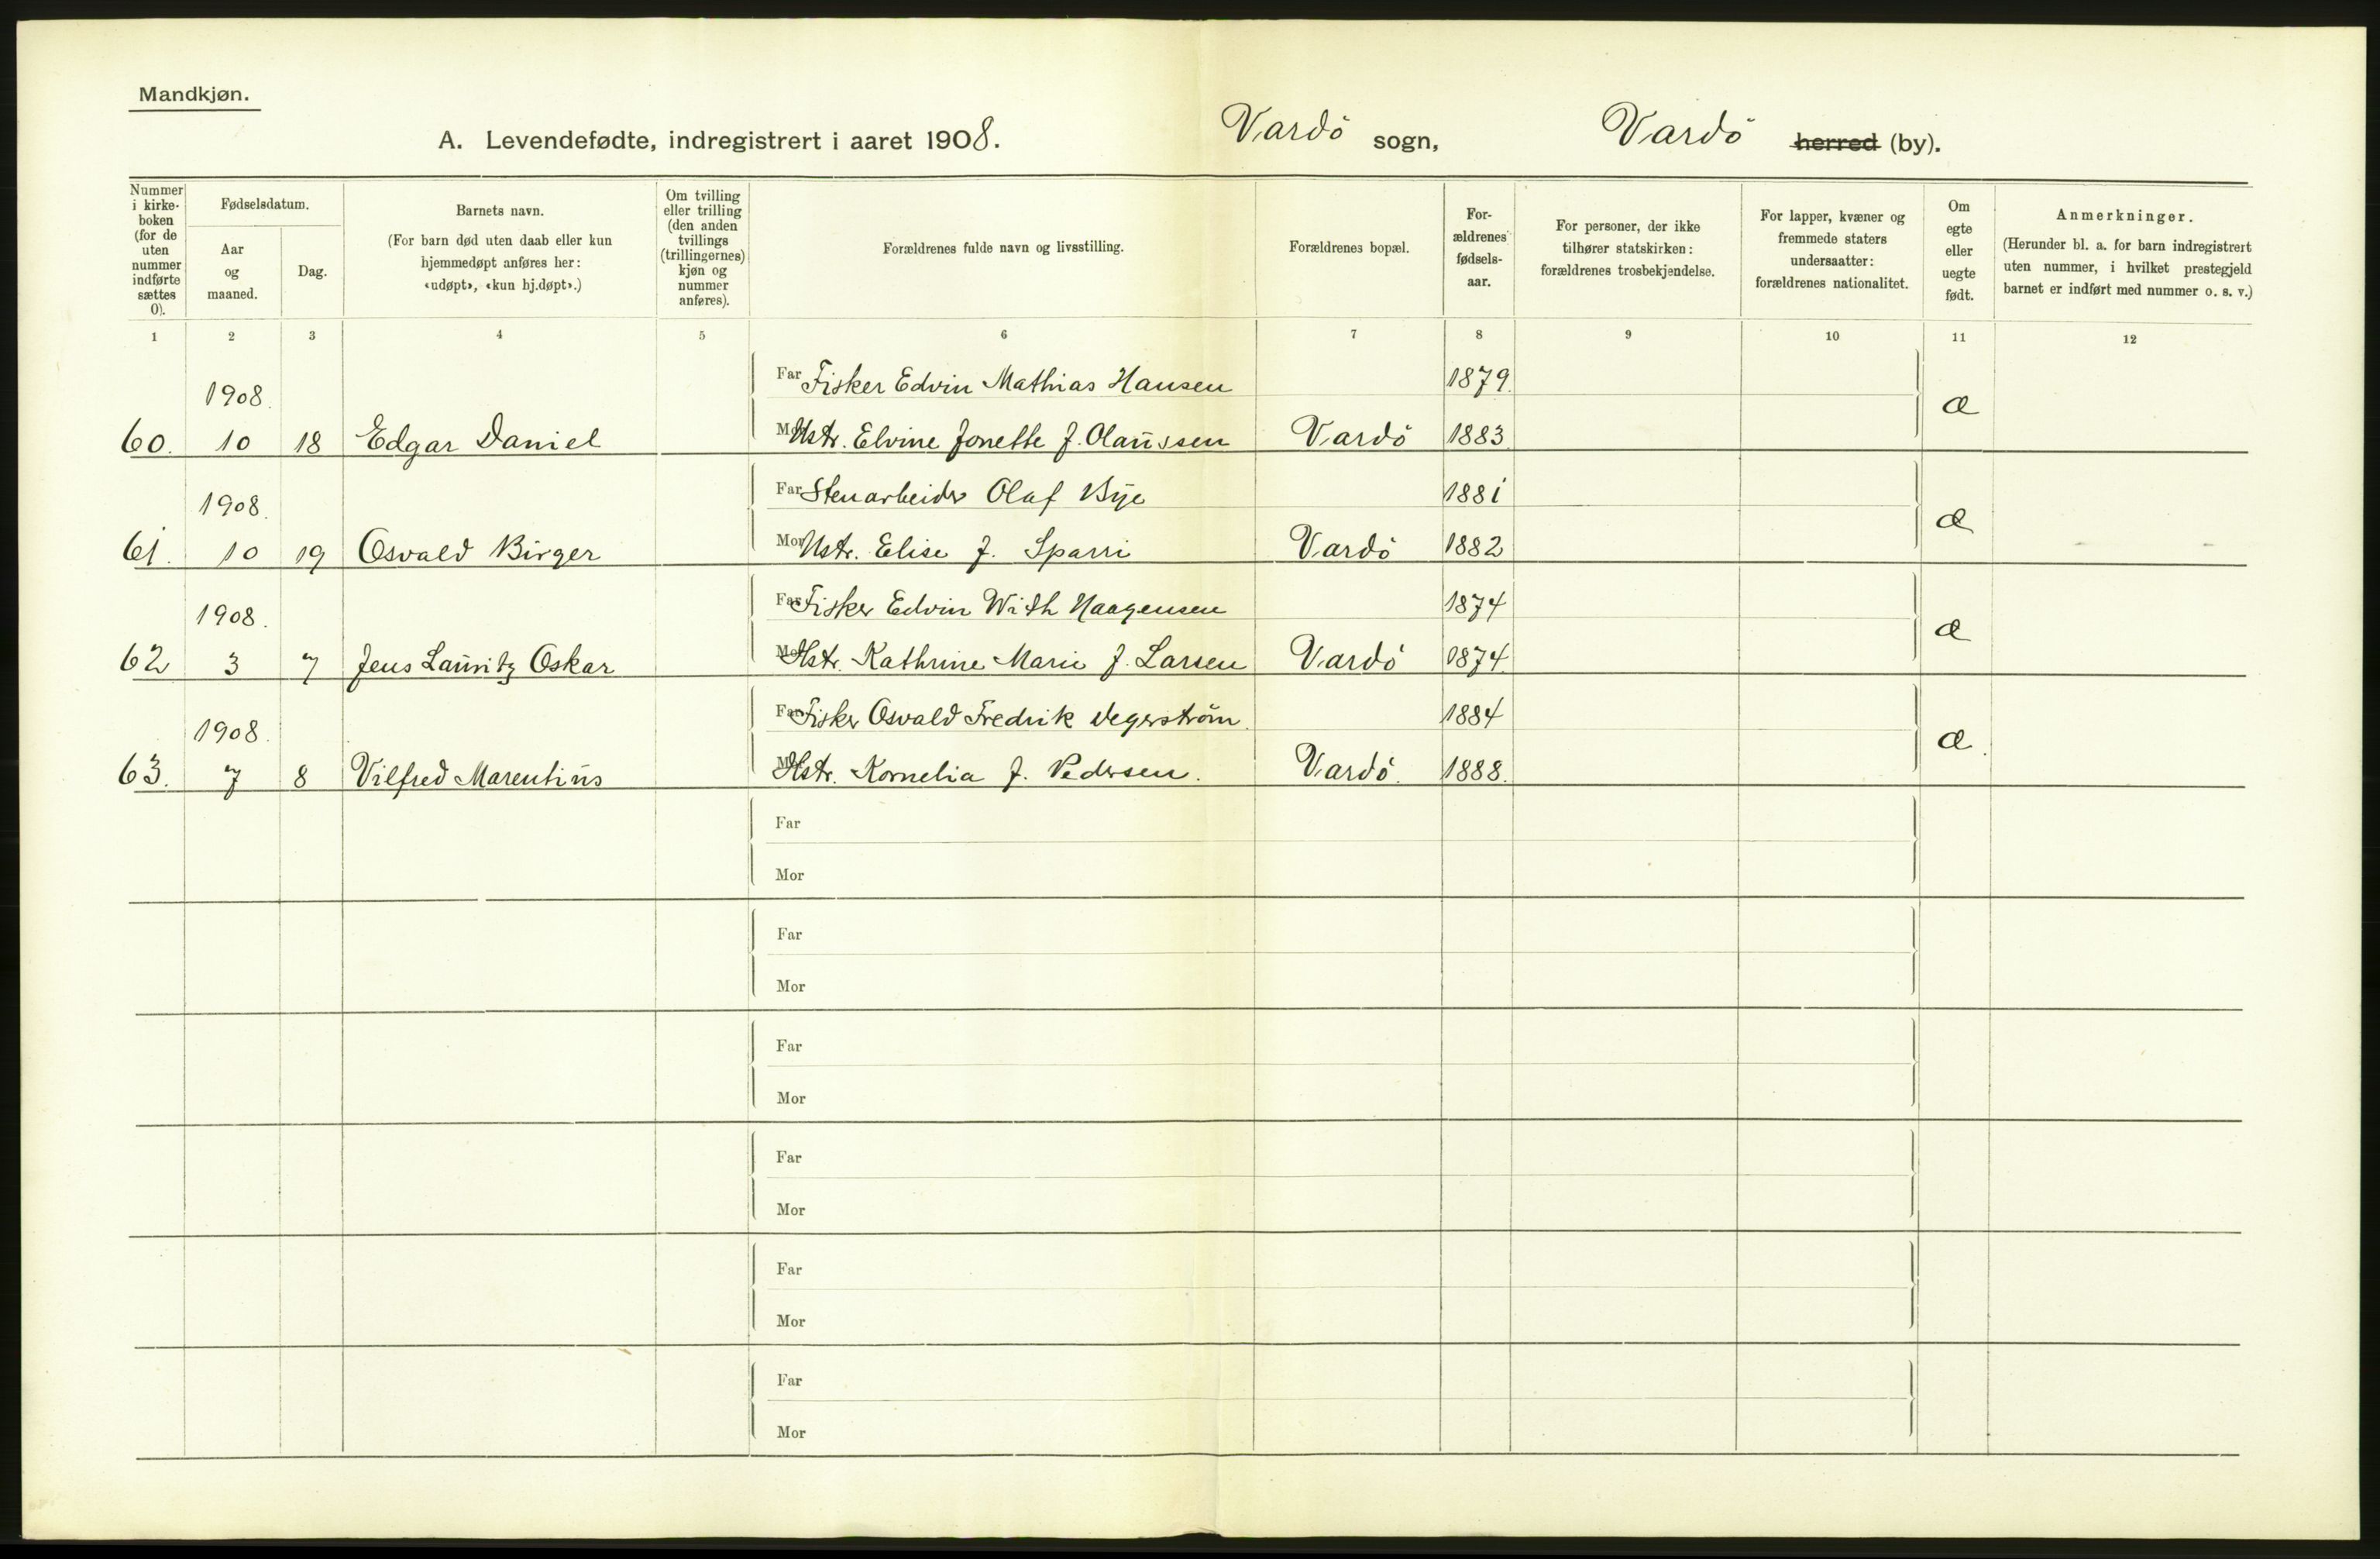 Mandkjøn.
A. Levendefødte, indregistrert i aaret 1908. Vardö sogn, Vardö herred (by).
Nummer i kirke- boken (for de uten nummer indførte sættes 0).
Fødselsdatum.
Aar og maaned.
Dag.
Barnets navn.
(For barn død uten daab eller kun hjemmedøpt anføres her: «udøpt», «kun hj.døpt».)
Om tvilling eller trilling (den anden tvillings (trillingernes) kjøn og nummer anføres).
Forældrenes fulde navn og livsstilling.
Forældrenes bopæl.
For- ældrenes fødsels- aar.
For personer, der ikke tilhører statskirken: forældrenes trosbekjendelse.
For lapper, kvæner og fremmede staters undersaatter: forældrenes nationalitet.
Om egte eller uegte født.
Anmerkninger.
(Herunder bl. a. for barn indregistrert uten nummer, i hvilket prestegjeld barnet er indført med nummer o. s. v.)
1 2 3 4 5 6 7 8 9 10 11 12
1908. Far Fisker Edvin Mathias Hansen 1879. æ
60. 10 18 Edgar Daniel Mor Hstr. Elvine Jonette f. Olaussen Vardö 1883
1908. Far Stenarbeider Olaf Bye 1881 æ
61. 10 19 Osvald Birger Mor Hstr. Elise f. Sparri Vardö 1882
1908. Far Fisker Edvin With Haagensen 1874 æ
62 3 7 Jens Lauritz Oskar Mor Hstr. Kathrine Marie f. Larsen Vardö 1874.
1908. Far Fisker Osvald Fredrik Degerström. 1884 æ.
63. 7 8 Vilfred Marentius Mor Hstr. Kornelia f. Pedersen. Vardö. 1888.
Far
Mor
Far
Mor
Far
Mor
Far
Mor
Far
Mor
Far
Mor